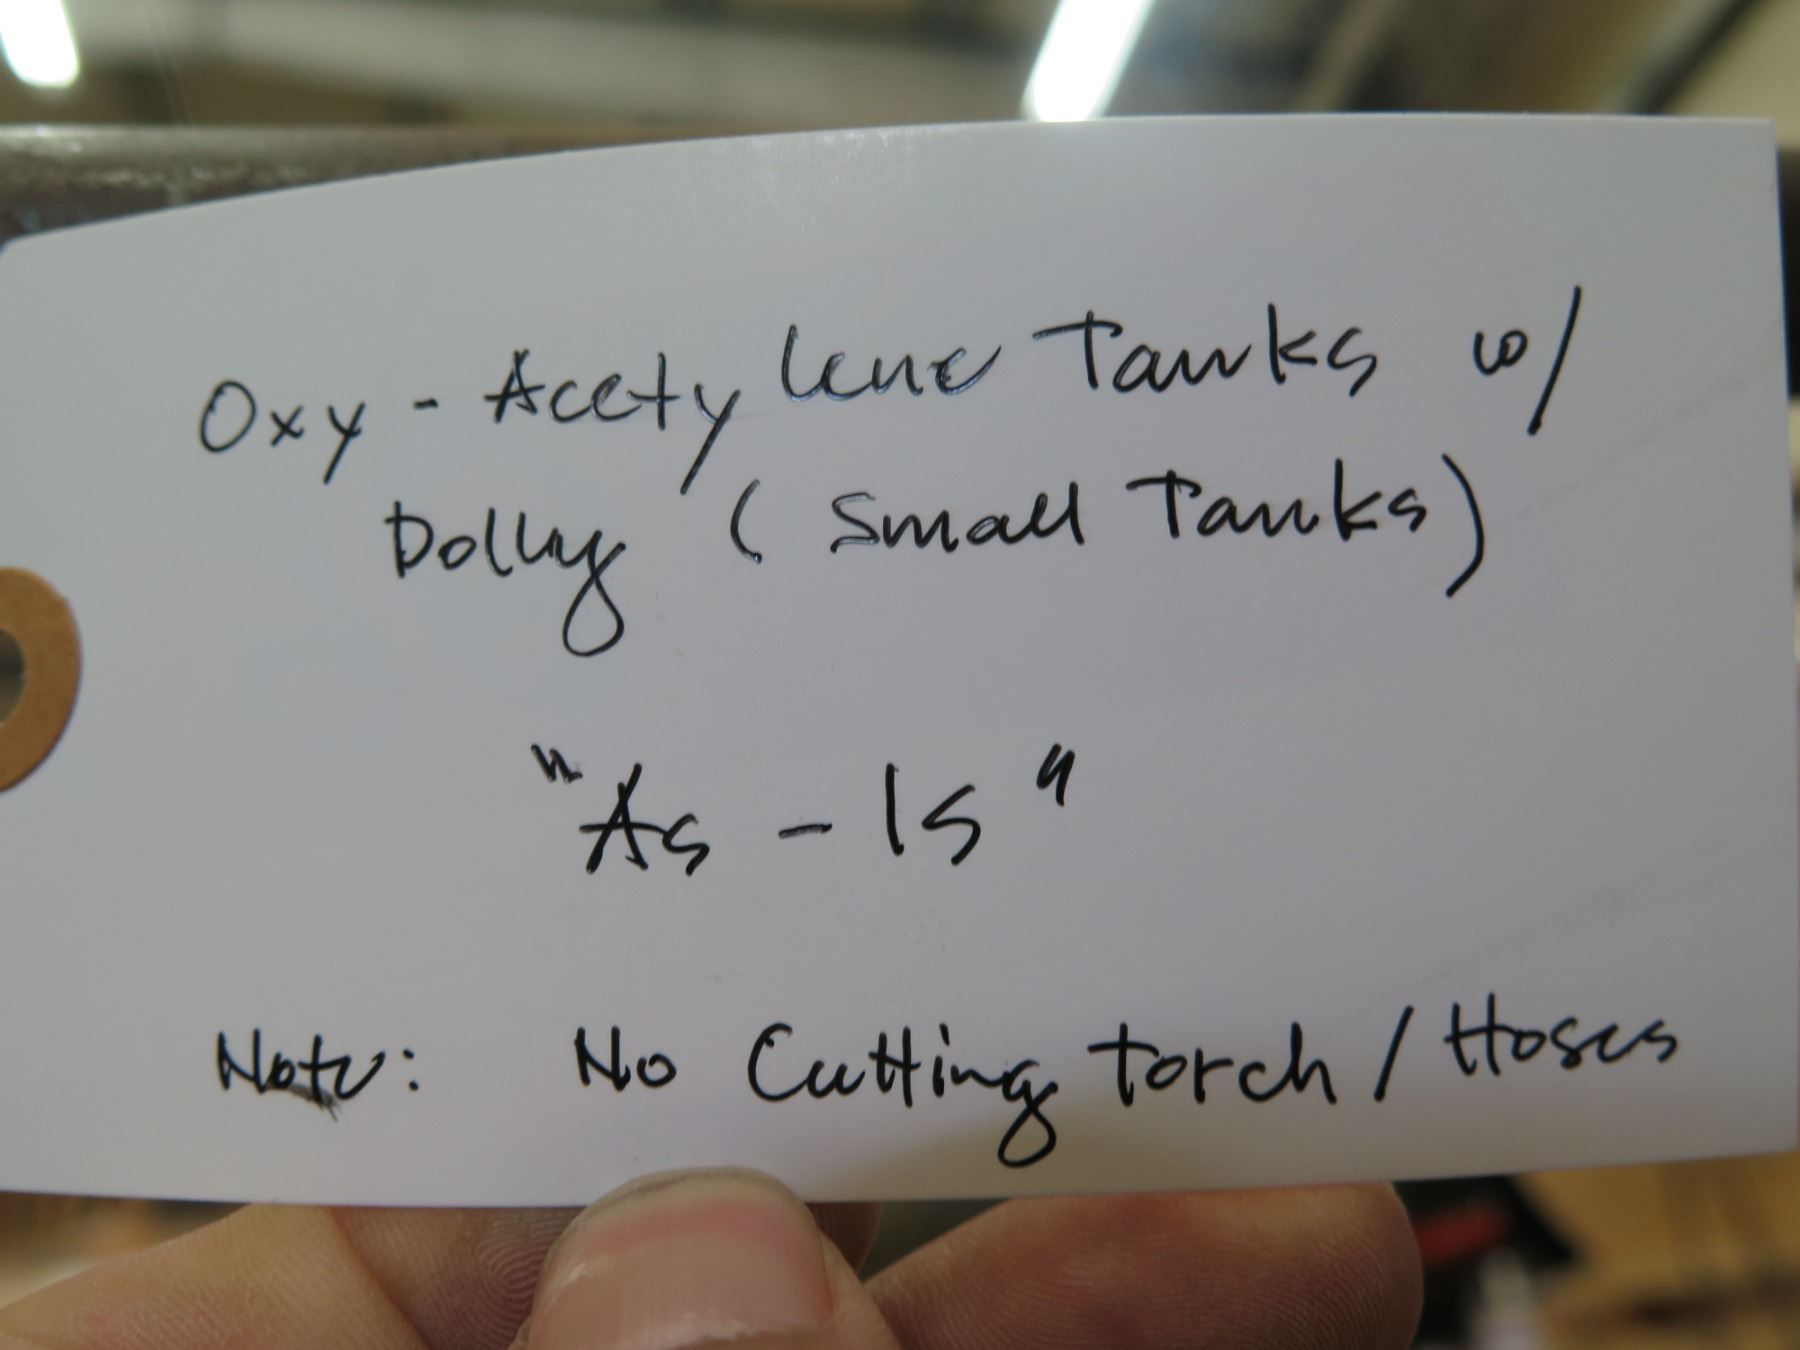 Oxy - Acetylene Tanks w/
Dolly (Small Tanks)
"As - Is"
Note: No Cutting torch / Hoses